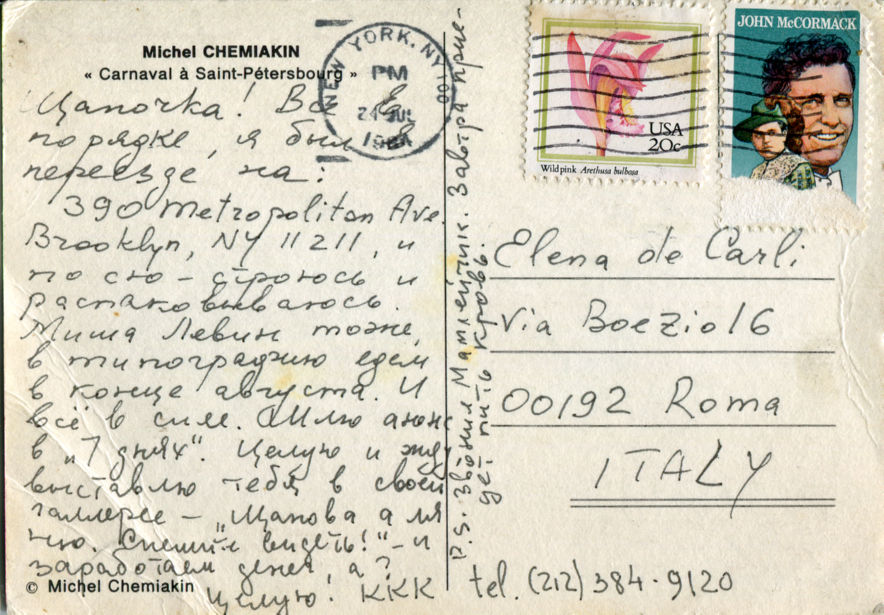 Michel CHEMIAKIN
« Carnaval à Saint-Pétersbourg »
Щапочка! Всё в
порядке, я был в
переезде на:
390 Metropolitan Ave.
Brooklyn, NY 11211, и
по сю – строюсь и
распаковываюсь.
Миша Левин тоже,
в типографию едем
в конце августа. И
всё в силе. Шлю анонс
в „7 днях“. Целую и жду
выставлю тебя в своей
галлерее – „Щапова а ля
ню. Спешите видеть!“ – и
заработаем денег, а?
© Michel Chemiakin
Целую! ККК
P.S. Звонил Матлейчик. Завтра прие-
дет пить кровь.
NEW YORK, NY 100
PM
1984
USA
20c
Wild pink Arethusa bulbosa
JOHN McCORMACK
Elena de Carli
Via Boezio 16
00192 Roma
ITALY
tel. (212) 384-9120